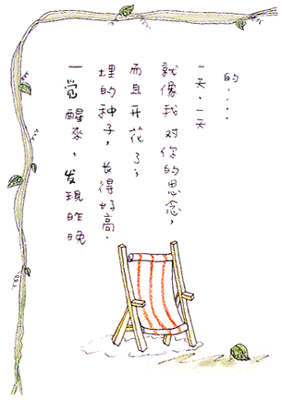 一觉醒來，发現昨晚
埋的种子，长得好高．
而且开花了；
就像我对你的思念，
一天，一天
的....